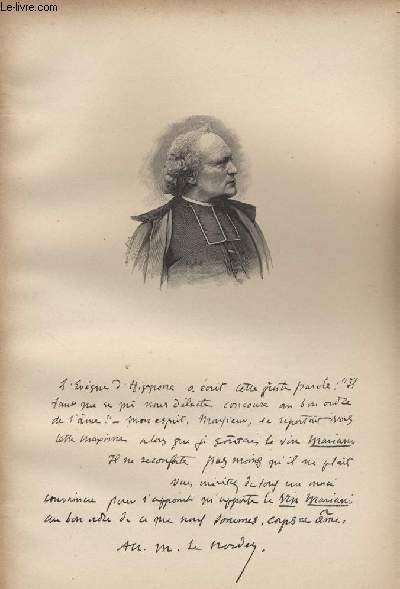 Le-livre.com
L'Evêque d'Hippone a écrit cette juste parole: "Il
faut que ce qui nous délecte concoure au bon ordre
de l'âme." — Mon esprit, Monsieur, se reportait vers
cette maxime alors que je goûtais le vin Mariani
Il ne réconforte pas moins qu'il ne plaît
vous de tout un
pour l'appoint qu'apporte le Vin Mariani
au bon ordre de ce que nous sommes, corps et âme.